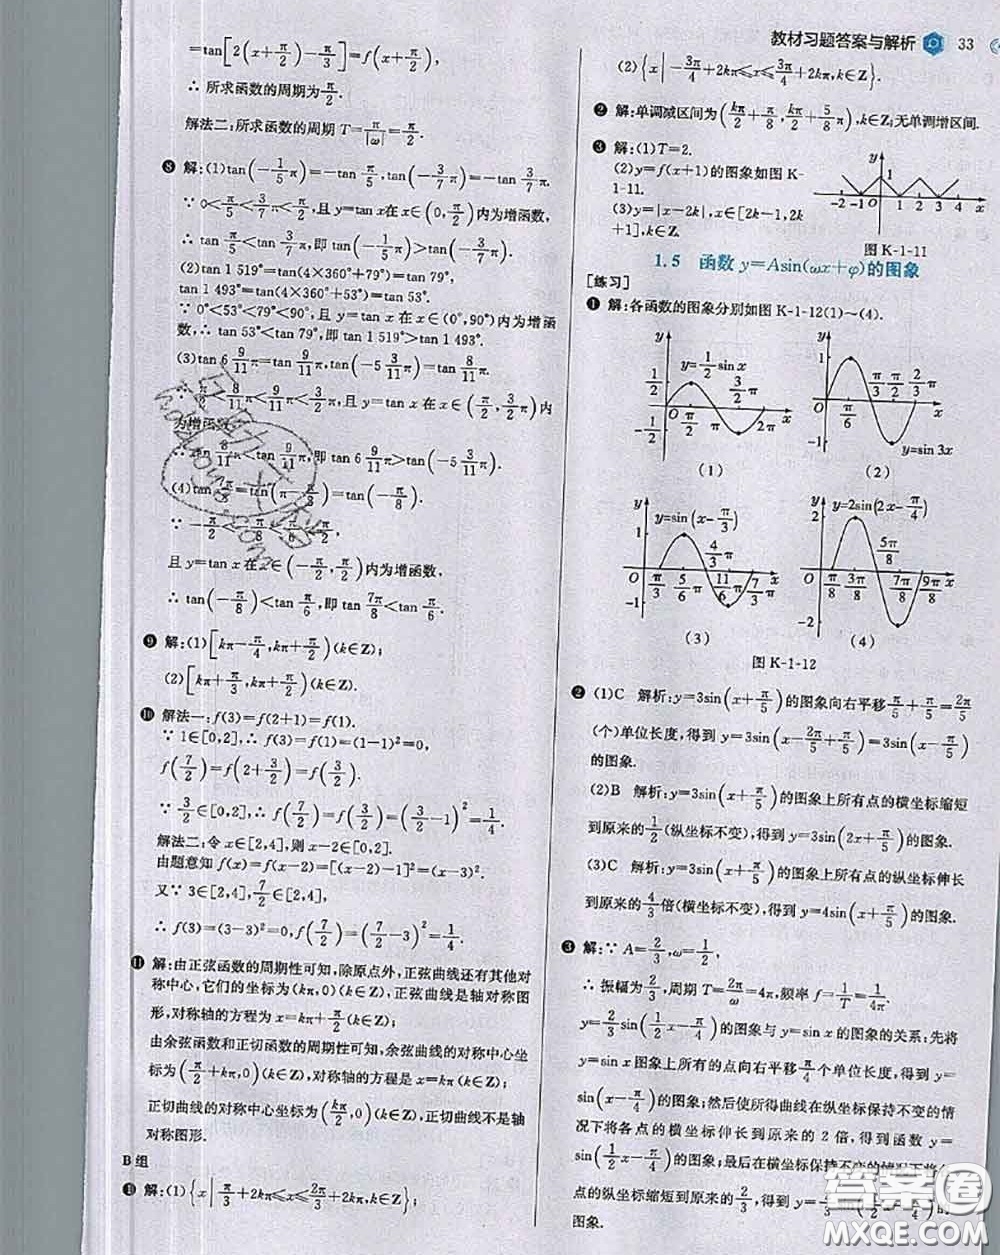 教材习题答案与解析 33
=tan[2(x+π/2)-π/3]=f(x+π/2),
∴ 所求函数的周期为π/2.
解法二:所求函数的周期 T=π/|ω|=π/2.
❽ 解:(1)tan(-1/5π)=-tanπ/5,tan(-3/7π)=-tan 3/7π.
∵ 0<π/5<3/7π<π/2,且 y=tan x在 x∈(0,π/2)内为增函数,
∴ tan π/5<tan 3/7π,即 tan(-1/5π)>tan(-3/7π).
(2)tan 1 519°=tan(4×360°+79°)=tan 79°,
tan 1 493°=tan(4×360°+53°)=tan 53°.
∵ 0°<53°<79°<90°,且 y=tan x 在 x∈(0°,90°)内为增函
数,∴ tan 53°<tan 79°,即 tan 1 519°>tan 1 493°.
(3)tan 6 9/11π=tan 9/11π,tan(-5 3/11π)=tan 8/11π.
∵ π/2<8/11π<9/11π<3/2π,且 y=tan x 在 x∈(π/2,3/2π)内
为增函数,
∴ tan 8/11π<tan 9/11π,即 tan 6 9/11π>tan(-5 3/11π).
(4)tan 7π/8=tan(π-π/8)=tan(-π/8).
∵ -π/2<-π/8<π/6<π/2,
且 y=tan x 在 x∈(-π/2,π/2)内为增函数,
∴ tan(-π/8)<tan π/6,即 tan 7π/8<tan π/6.
❾ 解:(1)[kπ-π/4,kπ+π/2)(k∈Z).
(2)[kπ+π/3,kπ+π/2)(k∈Z).
❿ 解法一:f(3)=f(2+1)=f(1).
∵ 1∈[0,2],∴ f(3)=f(1)=(1-1)²=0,
f(7/2)=f(2+3/2)=f(3/2).
∵ 3/2∈[0,2],∴ f(7/2)=f(3/2)=(3/2-1)²=1/4.
解法二:令 x∈[2,4],则 x-2∈[0,2].
由题意知 f(x)=f(x-2)=[(x-2)-1]²=(x-3)².
又∵ 3∈[2,4],7/2∈[2,4],
∴ f(3)=(3-3)²=0,f(7/2)=(7/2-3)²=1/4.
⓫ 解:由正弦函数的周期性可知,除原点外,正弦曲线还有其他对
称中心,它们的坐标为(kπ,0)(k∈Z),正弦曲线是轴对称图
形,对称轴的方程为 x=kπ+π/2(k∈Z);
由余弦函数和正切函数的周期性可知,余弦曲线的对称中心坐
标为(π/2+kπ,0)(k∈Z),对称轴的方程是 x=kπ(k∈Z);
正切曲线的对称中心坐标为(kπ/2,0)(k∈Z),正切曲线不是轴
对称图形.
B 组
❶ 解:(1){x|π/3+2kπ≤x≤2π/3+2kπ,k∈Z};
(2){x|-3π/4+2kπ≤x≤3π/4+2kπ,k∈Z}.
❷ 解:单调减区间为(kπ/2+π/8,kπ/2+5/8π),k∈Z;无单调增区间.
❸ 解:(1)T=2.
(2)y=f(x+1)的图象如图 K-
1-11.
(3)y=|x-2k|,x∈[2k-1,2k
+1],k∈Z.
y
1
-2 -1 O 1 2 3 4 x
图 K-1-11
1.5 函数 y=Asin(ωx+φ)的图象
[练习]
❶ 解:各函数的图象分别如图 K-1-12(1)~(4).
y
y=1/2sin x
1/2
O π/2 π 3/2π x
-1/2
(1)
y
1
O π/6 π/3 π/2 2/3π x
-1
y=sin 3x
(2)
y
y=sin(x-π/3)
1
O π/3 5/6π 4/3π 11/6π 7/3π x
-1
(3)
y
y=2sin(2x-π/4)
2
O π/8 3π/8 5π/8 7π/8 9π/8 x
-2
(4)
图 K-1-12
❷ (1)C 解析:y=3sin(x+π/5)的图象向右平移π/5+π/5=2π/5
(个)单位长度,得到 y=3sin(x-2π/5+π/5)=3sin(x-π/5)
的图象.
(2)B 解析:y=3sin(x+π/5)的图象上所有点的横坐标缩短
到原来的1/2(纵坐标不变),得到 y=3sin(2x+π/5)的图象.
(3)C 解析:y=3sin(x+π/5)的图象上所有点的纵坐标伸长
到原来的4/3倍(横坐标不变),得到 y=4sin(x+π/5)的图象.
❸ 解:∵ A=2/3,ω=1/2,
∴ 振幅为2/3,周期 T=2π/ω=4π,频率 f=1/T=1/4π.
y=2/3sin(1/2x-π/4)的图象与 y=sin x 的图象的关系:先将
y=sin x图象上所有的点向右平移π/4个单位长度,得到 y=
sin(x-π/4)的图象;然后使所得曲线在纵坐标保持不变的情
况下将各点的横坐标伸长到原来的 2 倍,得到函数 y=
sin(1/2x-π/4)的图象,最后在横坐标保持不变的情况下将各
点的纵坐标缩短到原来的2/3,得到 y=2/3sin(1/2x-π/4)的
图象.
答案圈
MXQE.COM